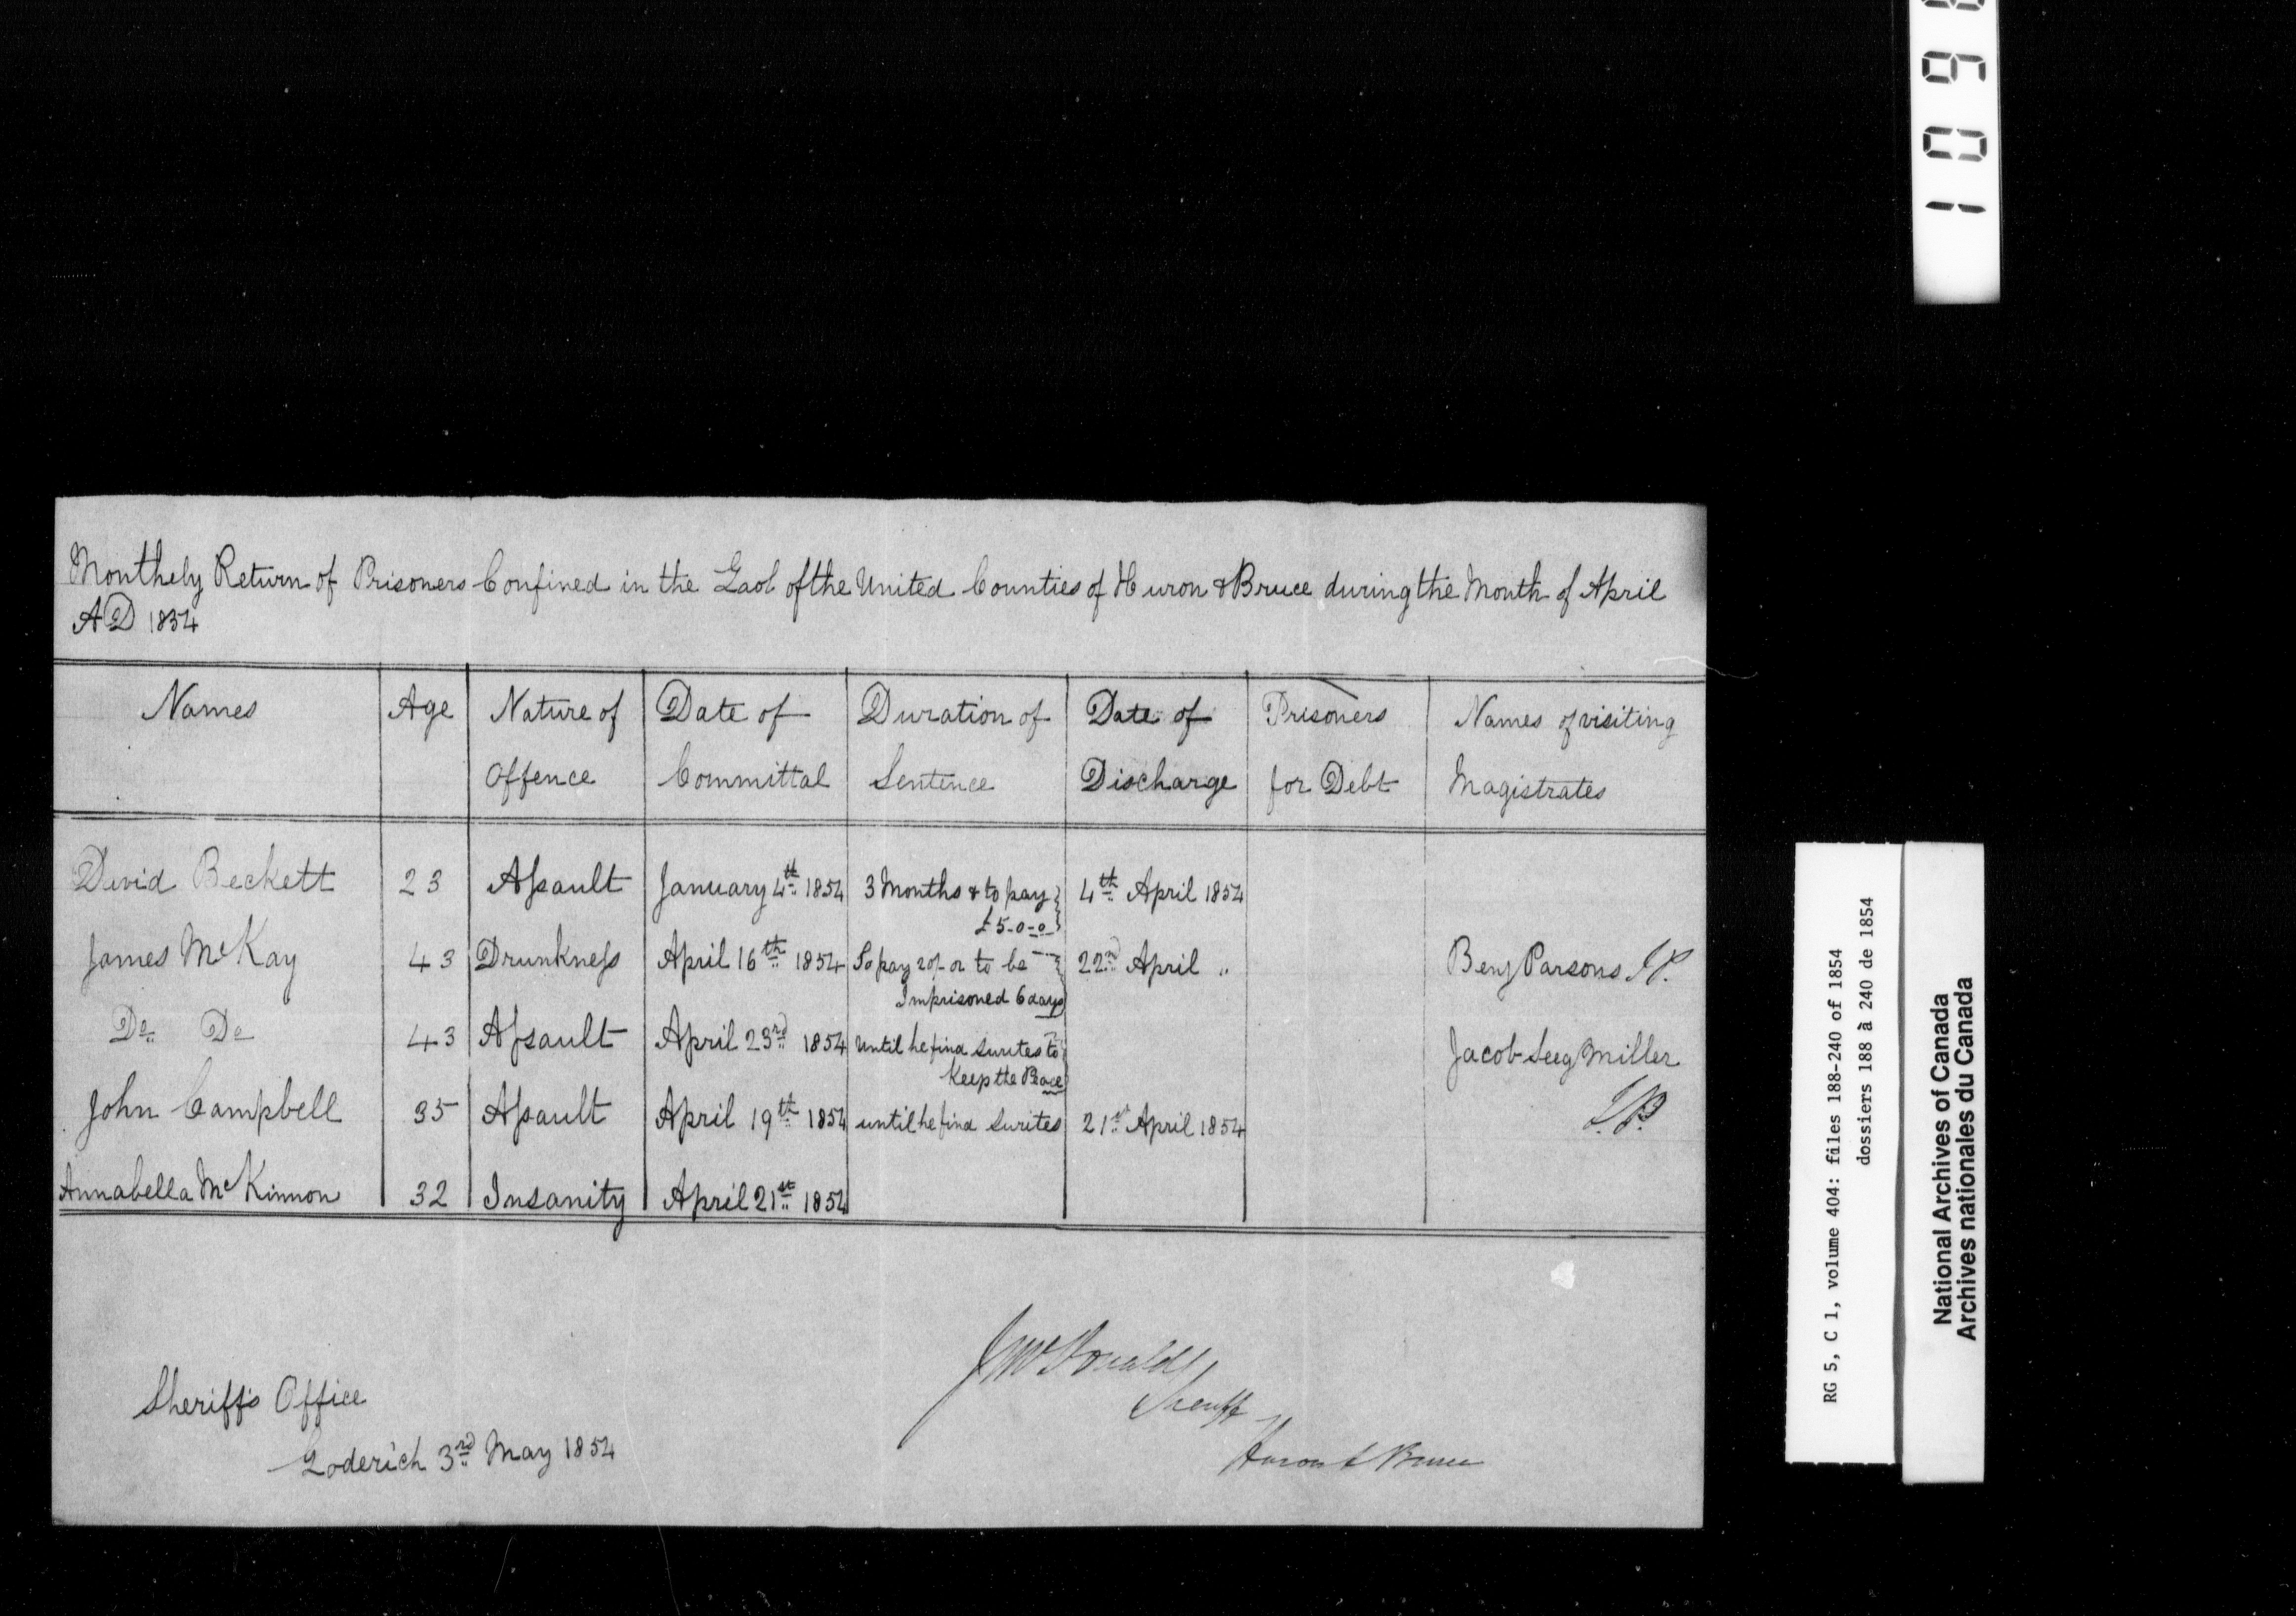 Monthely Return of Prisoners Confined in the Gaol of the United Counties of Huron & Bruce during the Month of April
AD 1854
Names Age Nature of Offence Date of Committal Duration of Sentence Date of Discharge Prisoners for Debt Names of visiting Magistrates
David Beckett 23 Assault January 4th 1854 3 Months & to pay £5-0-0 4th April 1854
James McKay 43 Drunkness April 16th 1854 To pay 20/- or to be Imprisoned 6 days 22nd April " Benj Parsons J.P.
Do Do 43 Assault April 23rd 1854 until he find Surites to Keep the Peace Jacob Seeg Miller J.P.
John Campbell 35 Assault April 19th 1854 until he find Surites 21st April 1854
Annabella McKinnon 32 Insanity April 21st 1854
Sheriff's Office
Goderich 3rd May 1854
J McDonald
Sheriff
Huron & Bruce
RG 5, C 1, volume 404: files 188-240 of 1854
dossiers 188 à 240 de 1854
National Archives of Canada
Archives nationales du Canada